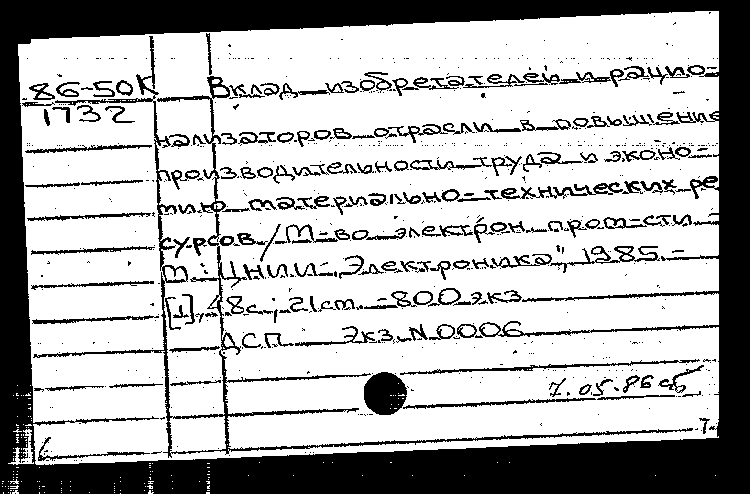 86-50К Вклад изобретателей и рацио-
1732
нализаторов отрасли в повышение
производительности труда и эконо-
мию материально-технических ре
сурсов / М-во электрон. пром-сти. -
М.: ЦНИИ "Электроника", 1985. -
[1], 48с.; 21см. - 800 экз.
ДСП Экз. N 0006
7.05.86